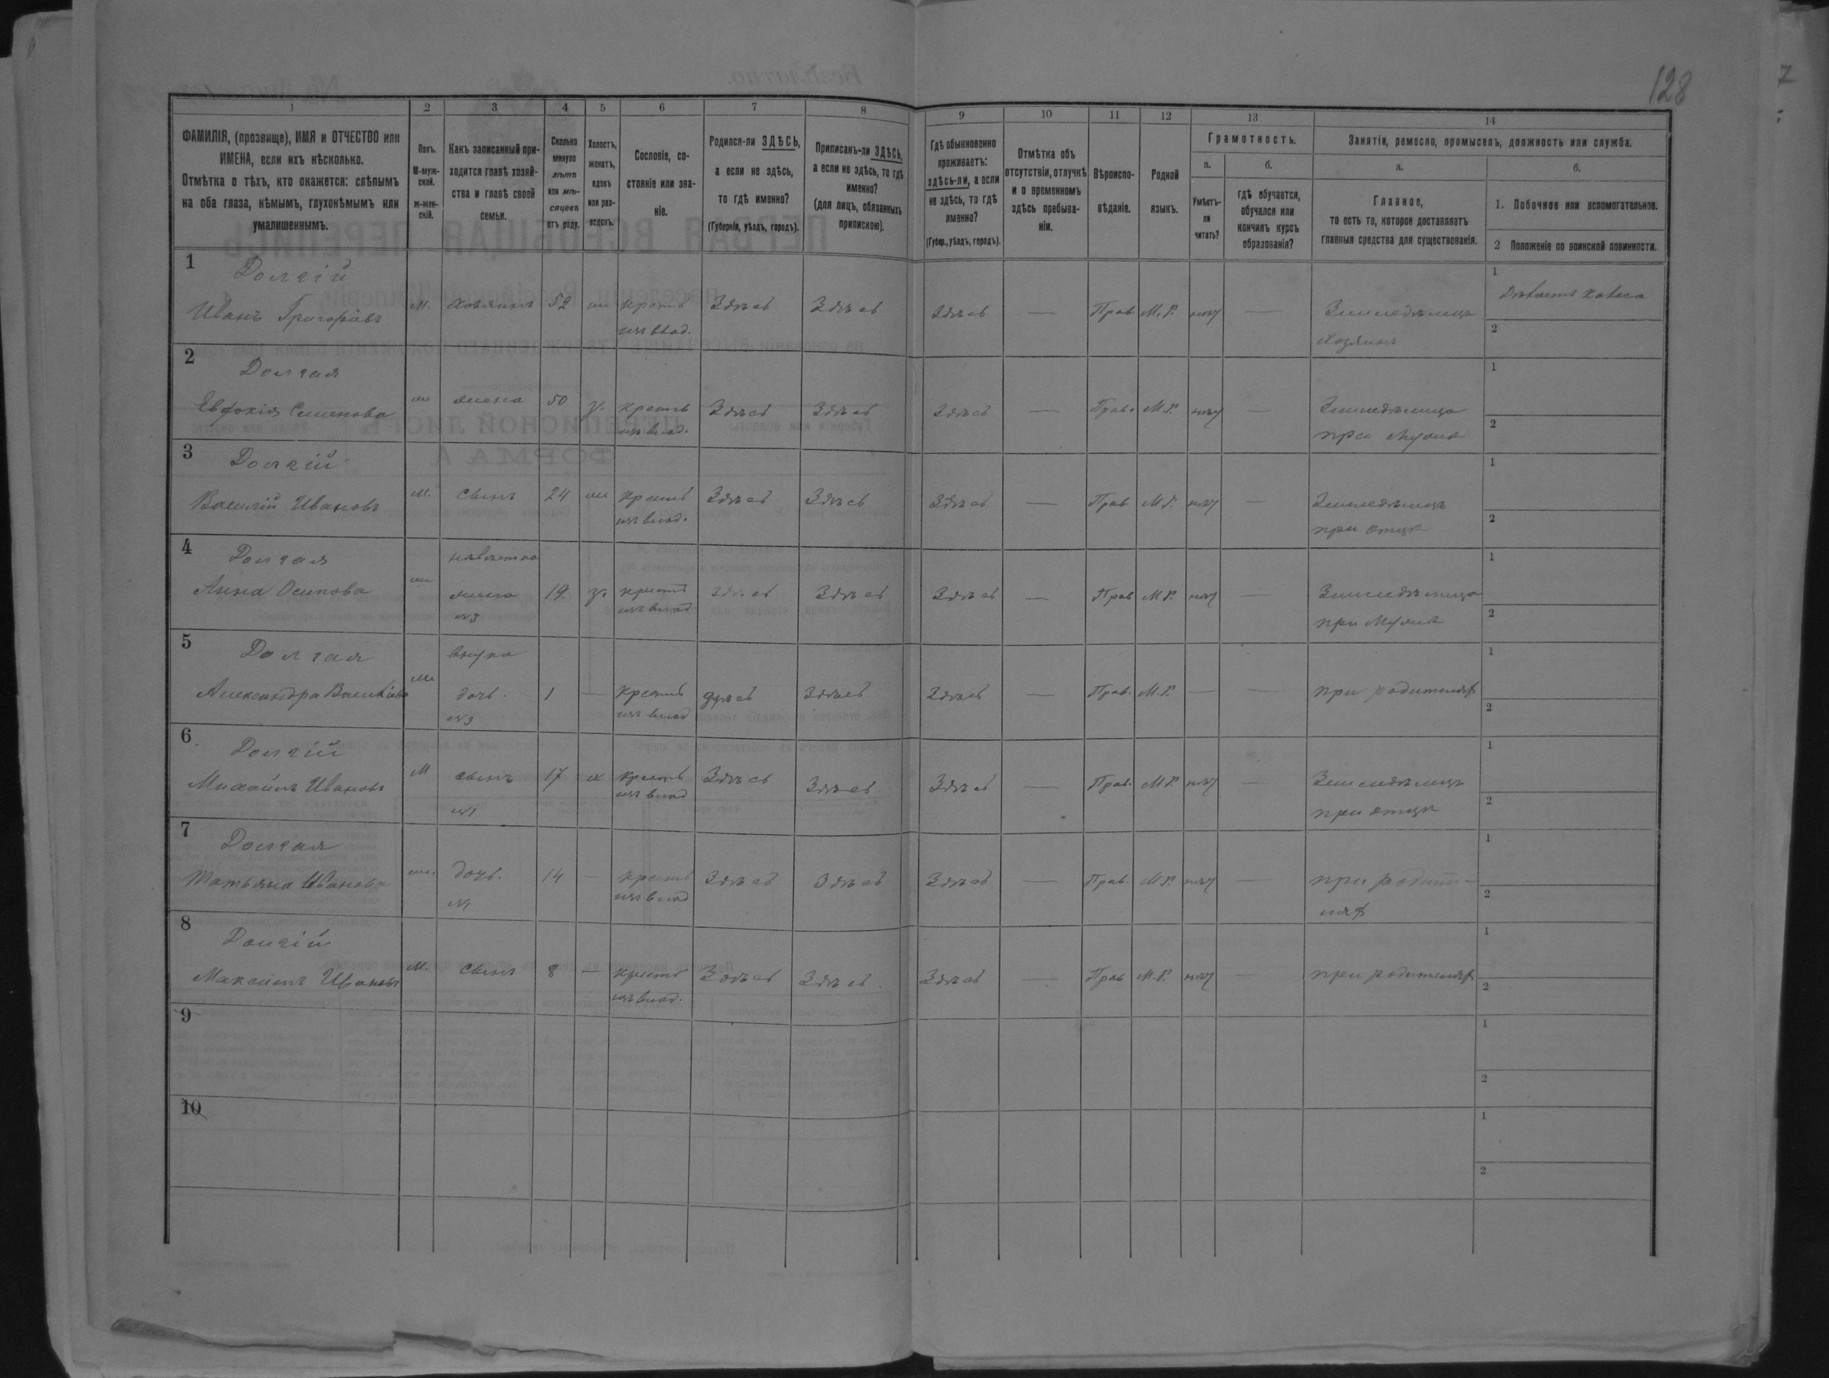 128
1 2 3 4 5 6 7 8 9 10 11 12 13 14
ФАМИЛІЯ, (прозвище), ИМЯ и ОТЧЕСТВО или
ИМЕНА, если ихъ нѣсколько.
Отмѣтка о тѣхъ, кто окажется: слѣпымъ
на оба глаза, нѣмымъ, глухонѣмымъ или
умалишеннымъ.
Полъ.
М-муж-
ской.
ж-жен-
скій.
Какъ записанный при-
ходится главѣ хозяй-
ства и главѣ своей
семьи.
Сколько
минуло
лѣтъ
или мѣ-
сяцевъ
отъ роду.
Холостъ,
женатъ,
вдовъ
или раз-
веденъ.
Сословіе, со-
стояніе или зва-
ніе.
Родился-ли ЗДѢСЬ,
а если не здѣсь,
то гдѣ именно?
(Губернія, уѣздъ, городъ).
Приписанъ-ли ЗДѢСЬ,
а если не здѣсь, то гдѣ
именно?
(для лицъ, обязанныхъ
припискою).
Гдѣ обыкновенно
проживаетъ:
здѣсь-ли, а если
не здѣсь, то гдѣ
именно?
(Губер., уѣздъ, городъ).
Отмѣтка объ
отсутствіи, отлучкѣ
и о временномъ
здѣсь пребыва-
ніи.
Вѣроиспо-
вѣданіе.
Родной
языкъ.
Грамотность.
а. б.
Умѣетъ-
ли
читать?
гдѣ обучается,
обучался или
кончилъ курсъ
образованія?
Занятія, ремесло, промыселъ, должность или служба.
а. б.
Главное,
то есть то, которое доставляетъ
главныя средства для существованія.
1. Побочное или вспомогательное.
2 Положеніе по воинской повинности.
1 Долгій
Иванъ Григорьевъ М. хозяинъ 52 ж крестья Здѣсь Здѣсь Здѣсь — Прав М.Р. нѣт — Земледѣлецъ
изъ влад. хозяинъ
1
2
2 Долгая
Евфокія Семенова ж жена 50 з. крестья Здѣсь Здѣсь Здѣсь — Прав. М.Р. нѣт — Земледѣлица
изъ влад. при мужѣ
1
2
3 Долгій
Василій Ивановъ М. сынъ 24 ж крестья Здѣсь Здѣсь Здѣсь — Прав М.Р. нѣт — Земледѣлецъ
изъ влад. при отцѣ
1
2
4 Долгая невѣстка
Анна Осипова ж жена 19 з. крестья Здѣсь Здѣсь Здѣсь — Прав М.Р. нѣт — Земледѣлица
№3 изъ влад при мужѣ
1
2
5 Долгая внука
Александра Василіева ж дочь. 1 — крестья здѣсь Здѣсь Здѣсь — Прав. М.Р. — — при родителях
№3 изъ влад
1
2
6 Долгій
Михаилъ Ивановъ М сынъ 17 х крестья Здѣсь Здѣсь Здѣсь — Прав. М.Р. нѣт — Земледѣлецъ
№1 изъ влад при отцѣ
1
2
7 Долгая
Татьяна Иванова ж. дочь. 14 — крестья Здѣсь Здѣсь Здѣсь — Прав. М.Р. нѣт — при родите-
№1 изъ влад лях
1
2
8 Долгій
Максимъ Ивановъ М. сынъ 8 — крестья Здѣсь Здѣсь. Здѣсь — Прав М.Р. нѣт — при родителях
изъ влад.
1
2
9
1
2
10
1
2